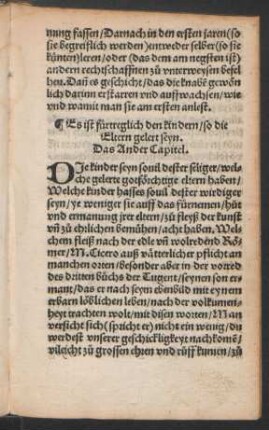 nung fassen / Darnach in den ersten jaren (so
sie begreiflich werden) entweder selber (so sie
künten) leren / oder (das dem am negsten ist)
andern rechtschaffnen zů vnterweysen befel
hen. Dañ es geschicht / das die knabẽ gewon
lich darinn erstarcken vnd auffwachsen / wie
vnd wamit man sie am ersten anlest.
¶ Es ist fürtreglich den kindern / so die
Eltern gelert seyn.
Das Ander Capitel.
DJe kinder seyn souil dester seliger / wel-
che gelerte gotßförchtige eltern haben /
Welche kinder hasses souil dester wirdiger
seyn / ye weniger sie auff das fürnemen / hůt
vnd ermanung jrer eltern / zů fleyß der kunst
vñ zů ehrlichen bemühen / acht haben. Wel-
chem fleiß nach der edle vñ wolredend Rö-
mer / M. Cicero auß vätterlicher pflicht an
manchen orten / besonder aber in der vorred
des dritten bůchs der Tugent / seynen son er-
mant / das er nach seym ebenbild mit eynem
erbarn löblichen leben / nach der volkumen-
heyt trachten wolt / mit disen worten / Man
versicht sich (spricht er) nicht ein wenig / du
werdest vnserer geschickligkeyt nachkomẽ /
vileicht zů grossen ehren vnd rüff kumen / zů